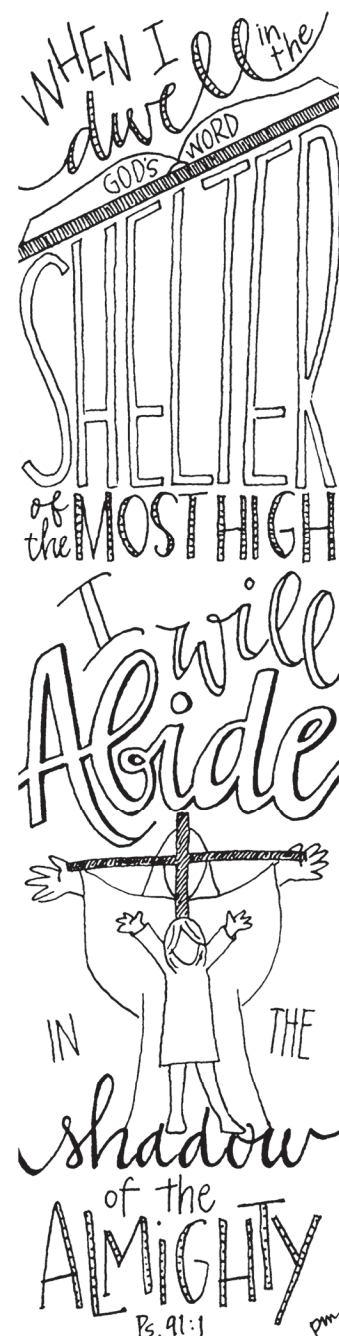 WHEN I
dwell in the
GOD'S WORD
SHELTER
of the MOST HIGH
I will
Abide
IN THE
shadow
of the
ALMIGHTY
Ps. 91:1
pm